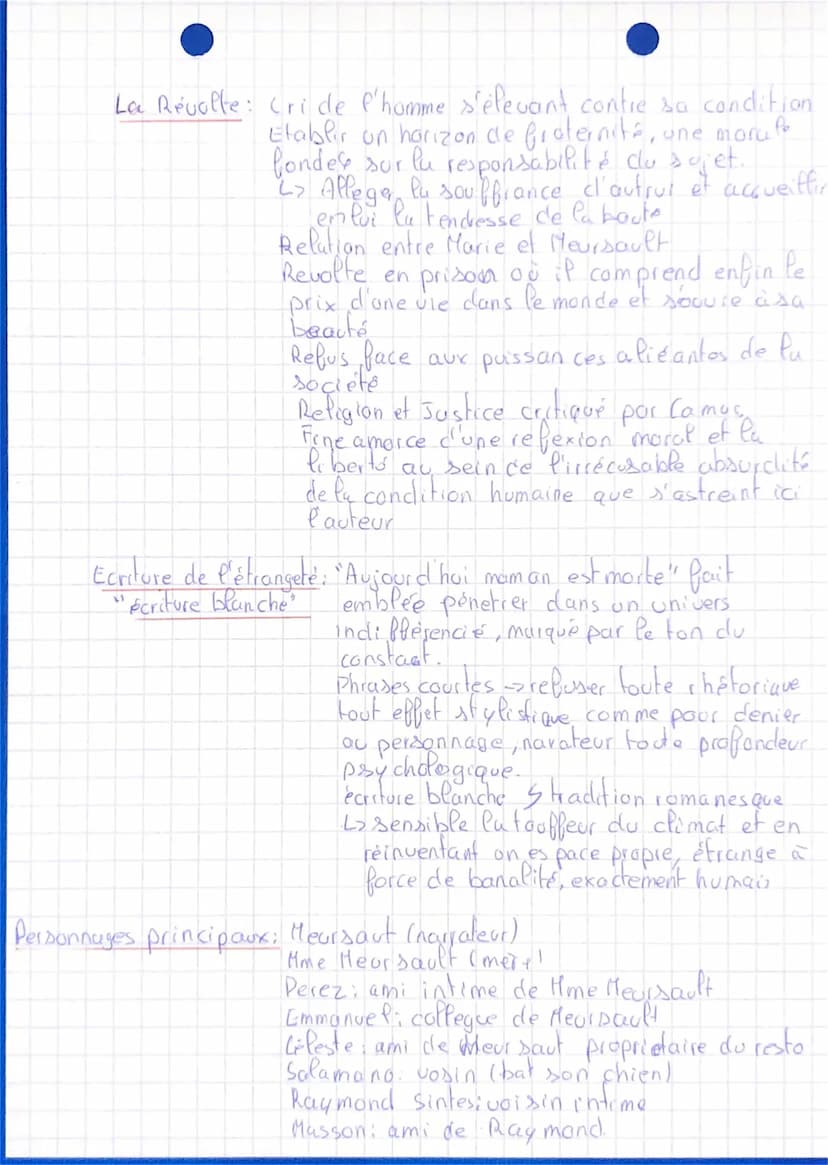 La Révolte: Cri de l'homme s'élevant contre sa condition
Etablir un horizon de fraternité, une morale
fondée sur la responsabilité du sujet.
↳ Alléger la souffrance d'autrui et accueillir
en lui la tendesse de la baute
Relation entre Marie et Meursault
Revolte en prison où il comprend enfin le
prix d'une vie dans le monde et s'ouvre à sa
beauté
Refus face aux puissances aliéantes de la
société
Religion et Justice critiqué par Camus
Fine amorce d'une reflexion moral et la
liberté au sein de l'irrécusable absurdité
de la condition humaine que s'astreint ici
l'auteur
Ecriture de l'étrangeté: "Aujourd'hui maman est morte" fait
"écriture blanche" emblée pénetrer dans un univers
indifférencié, marqué par le ton du
constat.
Phrases courtes → refuser toute rhétorique
tout effet stylistique comme pour dénier
au personnage, navateur toute profondeur
psychologique.
écriture blanche ↯ tradition romanesque
↳ sensible la touffeur du climat et en
réinventant un espace propre, étrange à
force de banalité, exactement humain
Personnages principaux: Meursaut (narrateur)
Mme Meursault (mère)
Perez: ami intime de Mme Meursault
Emmanuel: collegue de Meursault
Céleste: ami de Meursaut proprietaire du resto
Salamano: vosin (bat son chien)
Raymond Sintes: voisin intime
Masson: ami de Raymond